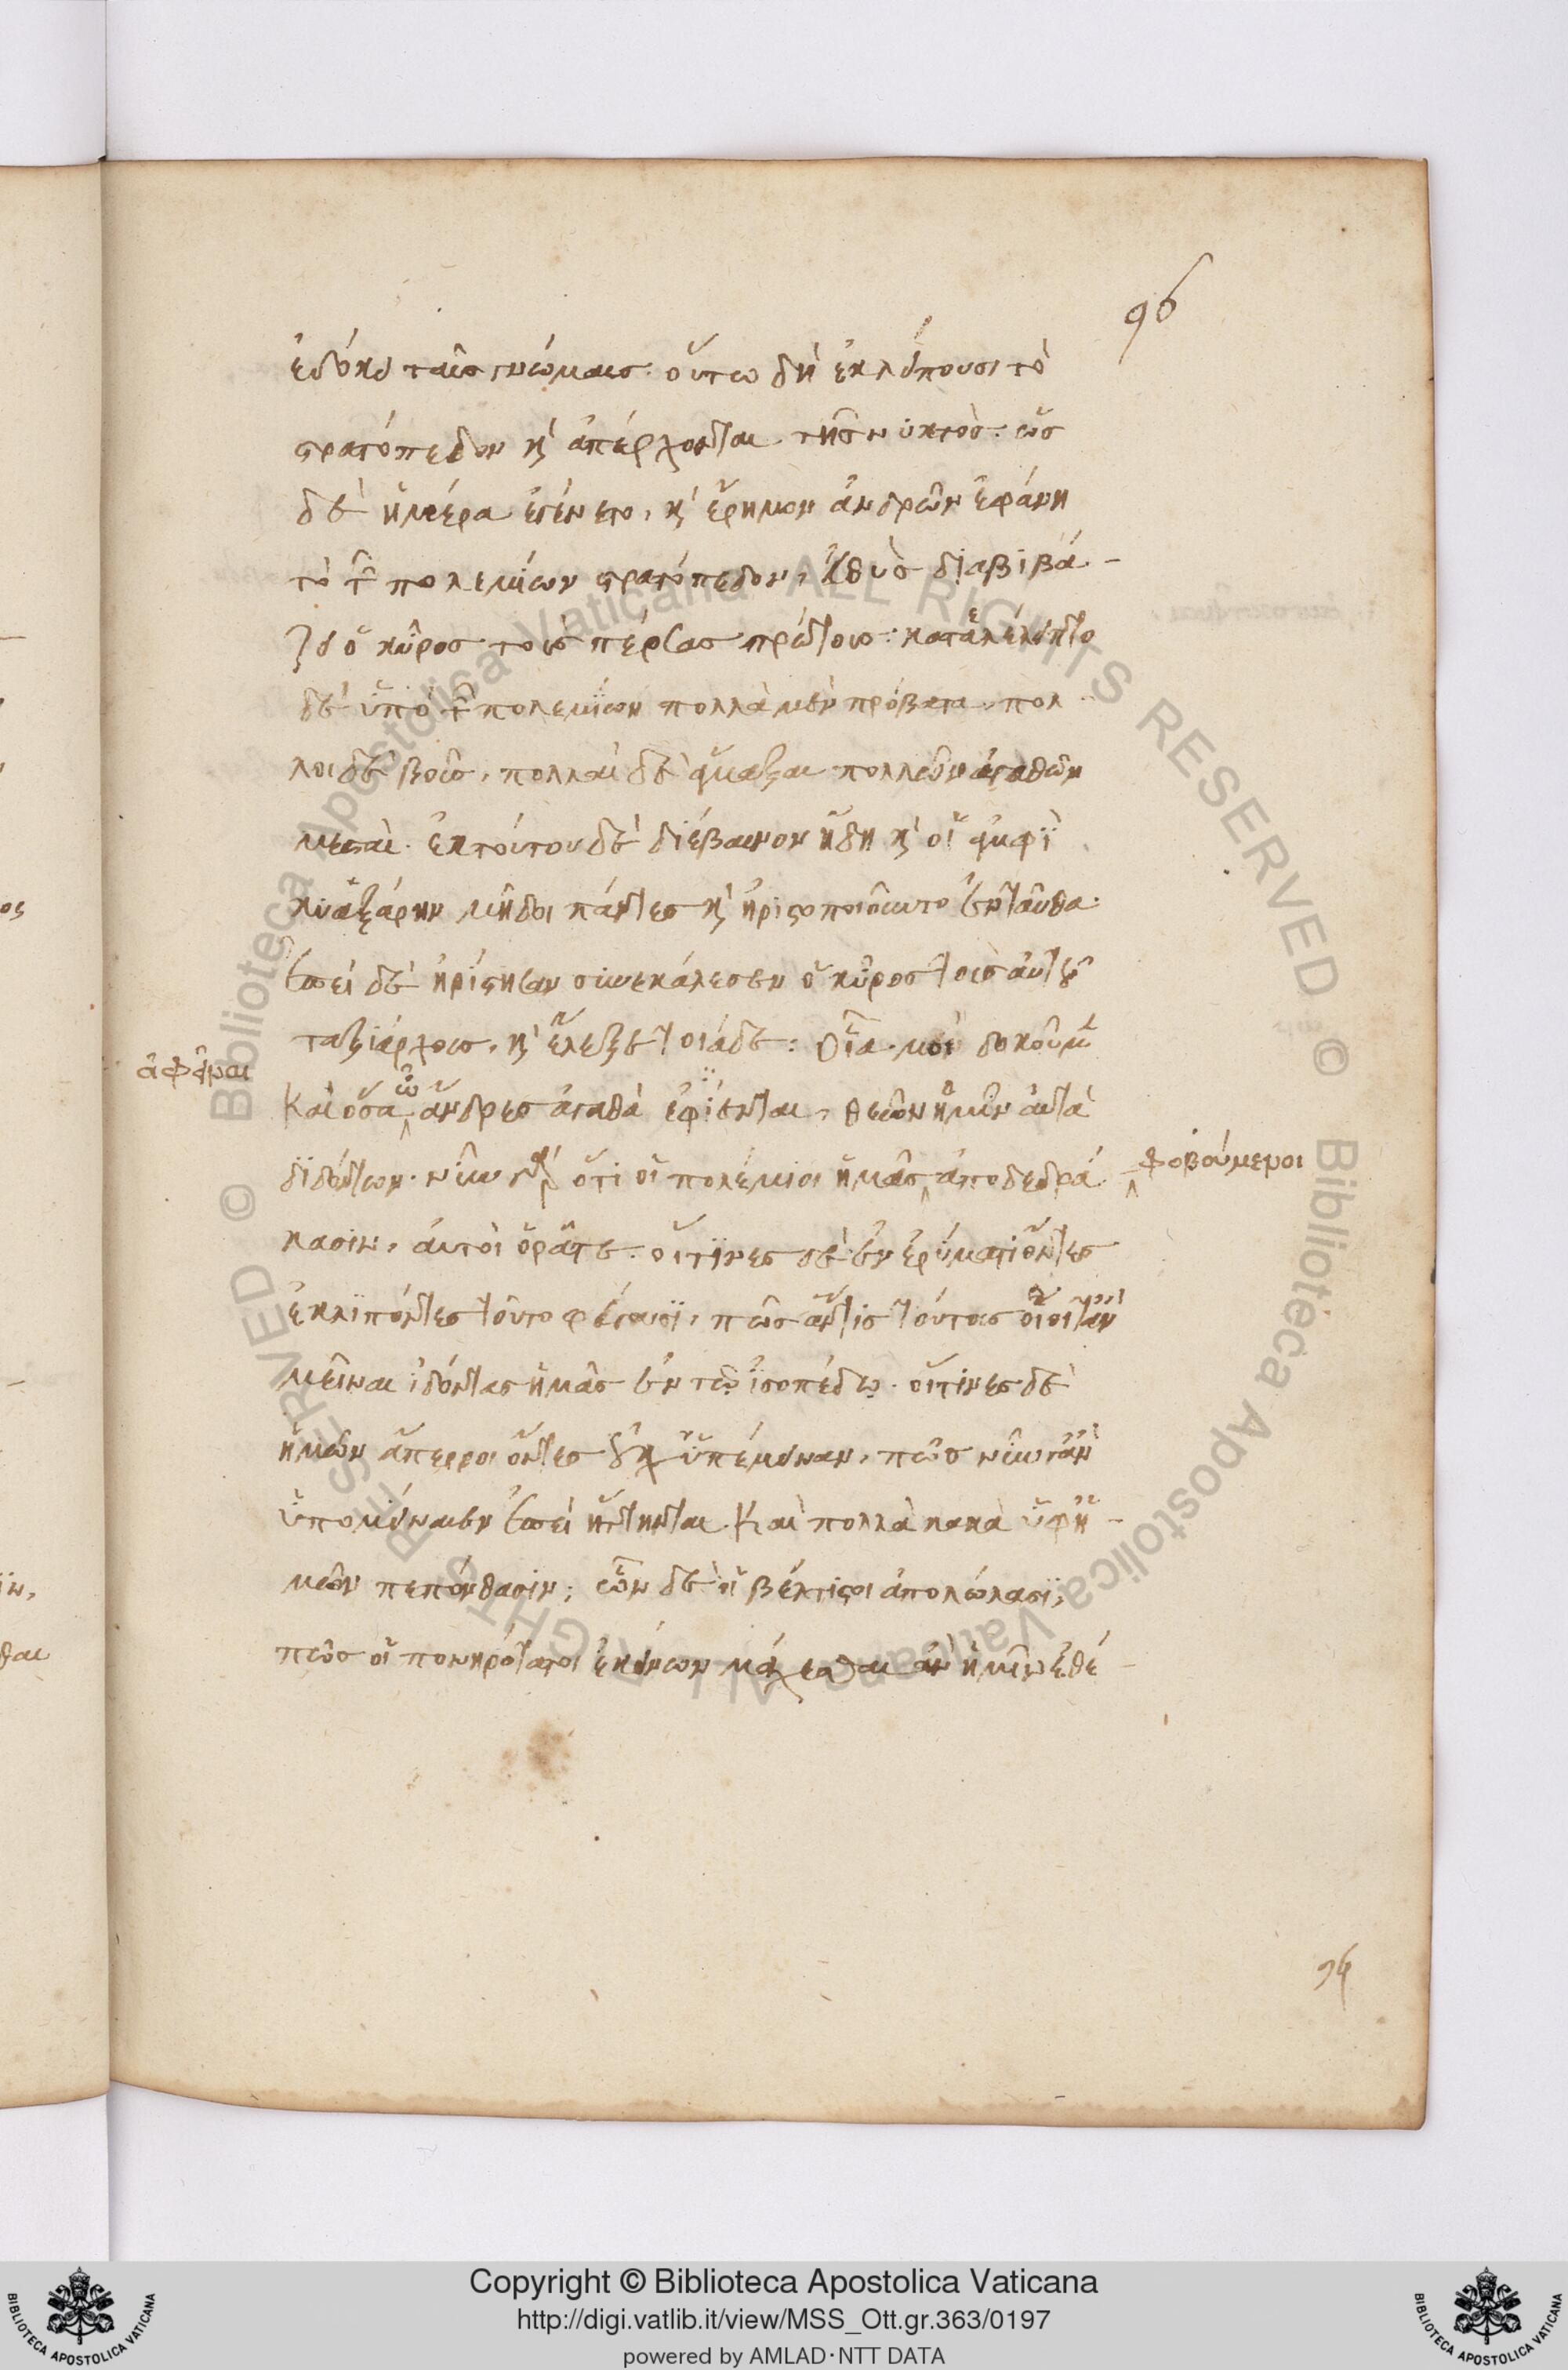 96
ἐδόκει ταῖς γνώμαις. οὕτω δὴ ἐκλείπουσι τὸ
στρατόπεδον κ̀ ἀπέρχονται τῆς νυκτὸς. ὡς
δὲ ἡμέρα ἐγένετο, κ̀ ἔρημον ἀνδρῶν ἐφάνη
τὸ τῶν πολεμίων στρατόπεδον, εὐθὺς διαβιβά-
ζει ὁ κῦρος τοὺς πέρσας πρώτους: κατελέλειπτο
δὲ ὑπὸ τῶν πολεμίων πολλὰ μὲν πρόβατα, πολ
λοι δὲ βοῦς, πολλαὶ δὲ ἅμαξαι πολλῶν ἀγαθῶν
μεσταὶ. ἐκ τούτου δὲ διέβαινον ἤδη κ̀ οἱ ἀμφὶ
κυαξάρην μῆδοι πάντες κ̀ ἠριστοποιοῦντο ἐνταῦθα.
ἐπεὶ δὲ ἠρίστησαν συνεκάλεσεν ὁ κῦρος τοὺς αὐτοῦ
ταξιάρχους, κ̀ ἔλεξε τοιάδε: Οἷα μοι δοκοῦμεν
ἀφεῖναι
Καὶ ὅσα ὦ ἄνδρες ἀγαθὰ ἐφίενται, θεῶν ἡμῖν αὐτὰ
διδόντων. νῦν γὰρ ὅτι οἱ πολέμιοι ἡμᾶς ἀποδεδρά
φοβούμενοι
κασιν, αὐτοὶ ὁρᾶτε. οἵτινες δὲ ἐν ἐρύματι ὄντες
ἐκλιπόντες τοῦτο φεύγουσι, πῶς ἄν τις τούτους οἴοιτ' ἂν
μεῖναι ἰδόντας ἡμᾶς ἐν τῷ ἰσοπέδῳ. οἵτινες δὲ
ἡμῶν ἄπειροι ὄντες οὐχ ὑπέμειναν, πῶς νῦν γ' ἂν
ὑπομείναιεν ἐπεὶ ἥττηνται. Καὶ πολλὰ κακὰ ὑφ' ἡ-
μῶν πεπόνθασιν; ὧν δὲ οἱ βέλτιστοι ἀπολώλασι,
πῶς οἱ πονηρότατοι ἐκείνων μάχεσθαι ἂν ἡμῖν ἐθέ-
94
Copyright © Biblioteca Apostolica Vaticana
http://digi.vatlib.it/view/MSS_Ott.gr.363/0197
powered by AMLAD·NTT DATA